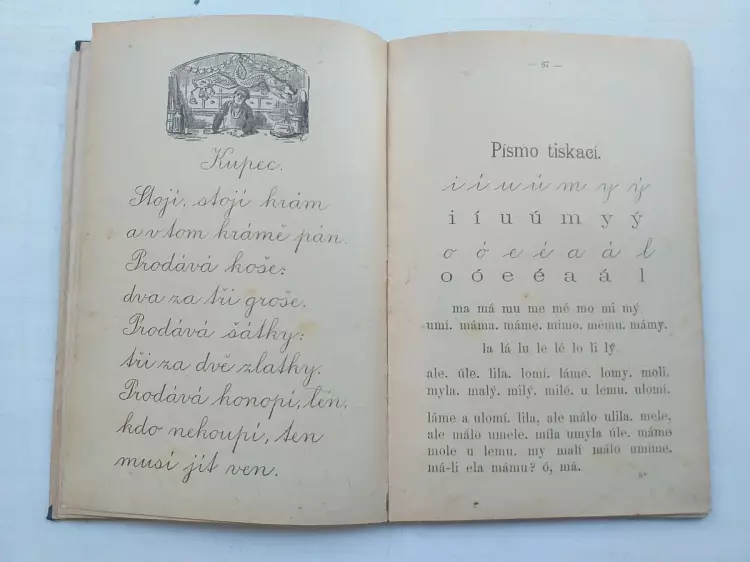 Kupec.
Stojí, stojí krám
a v tom krámě pán.
Prodává koše:
dva za tři groše.
Prodává šátky:
tři za dvě zlatky.
Prodává konopí, len,
kdo nekoupí, ten
musí jít ven.
— 67 —
Písmo tiskací.
i í u ú m y ý
i í u ú m y ý
o ó e é a á l
o ó e é a á l
ma má mu me mé mo mi mý
umí. máma. máme. mimo. mému. mámy.
la lá lu le lé lo li lý
ale. úle. lila. lomí. láme. lomy. molí.
myla. malý. milý. milé. u lemu. ulomí.
láme a ulomí. lila, ale málo ulila. mele,
ale málo umele. míla umyla úle. máme
mole u lemu. my malí málo umíme.
má-li ela mámu? ó, má.